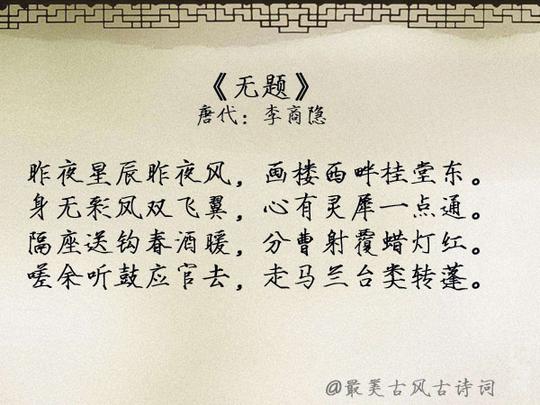 《无题》
唐代：李商隐
昨夜星辰昨夜风，画楼西畔桂堂东。
身无彩风双飞翼，心有灵犀一点通。
隔座送钩春酒暖，分曹射覆蜡灯红。
嗟余听鼓应官去，走马兰台类转蓬。
@最美古风古诗词